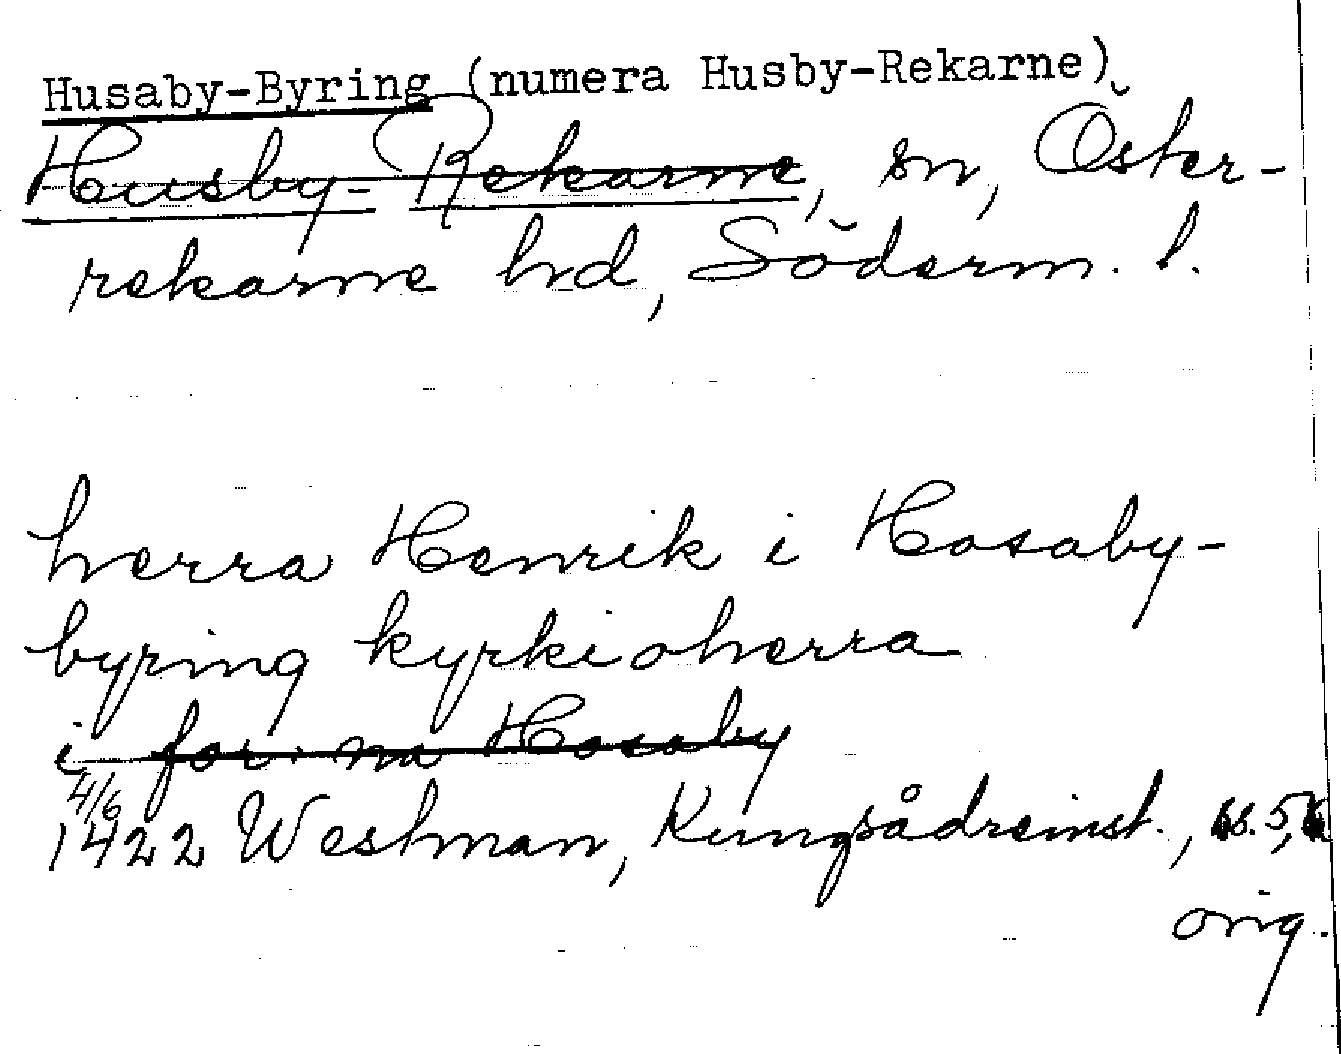 Husaby-Byring (numera Husby-Rekarne)
Husby-Rekarne, sn, Öster-
rekarne hd, Söderm. l.
herra Henrik i Hosaby-
byring kyrkioherra
i for. na Hosaby
4/6
1422 Westman, Kungsådreinst., s. 5,
orig.